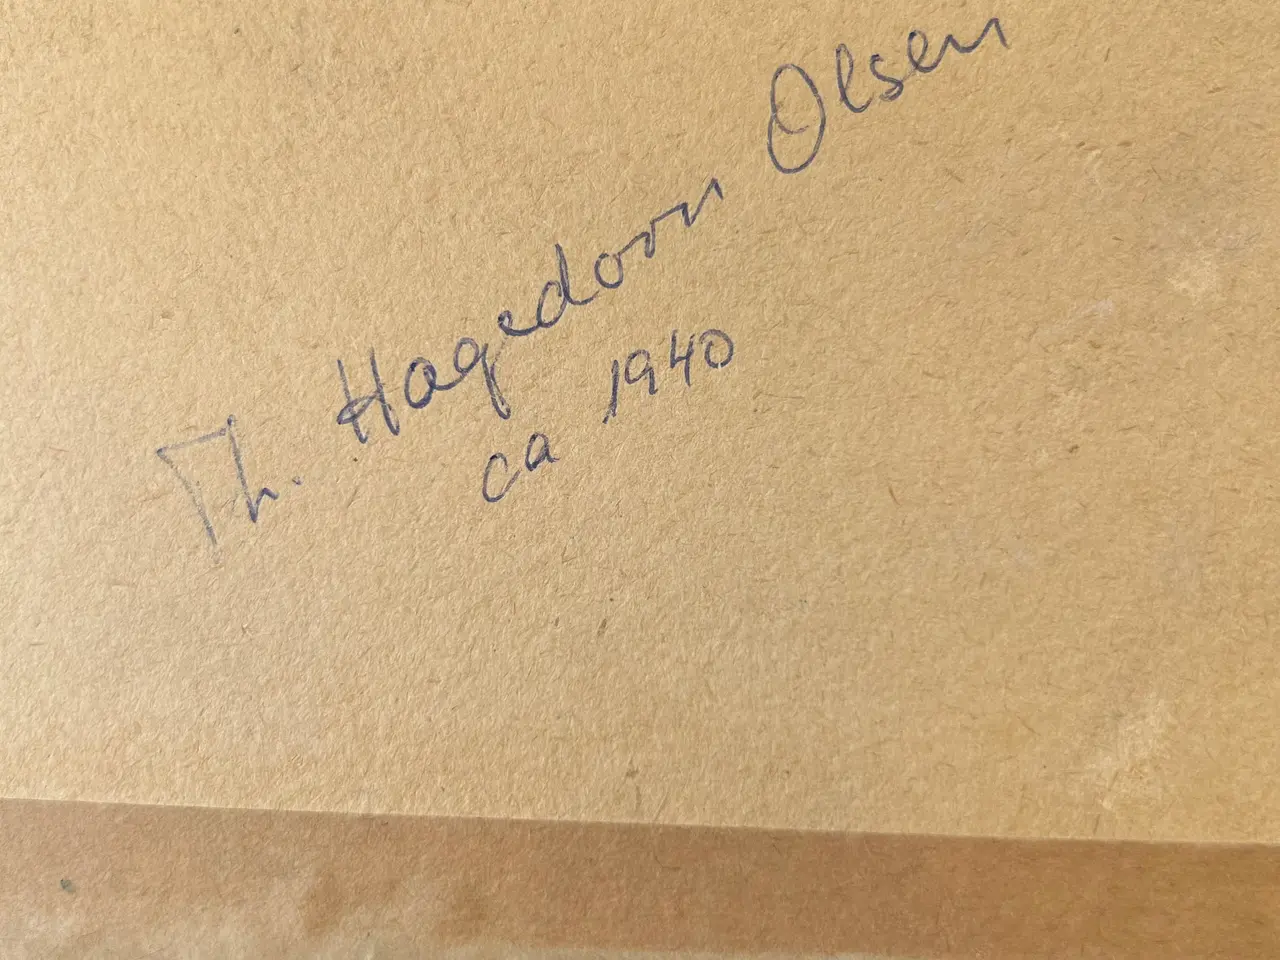 Th. Hagedorn Olsen
ca 1940